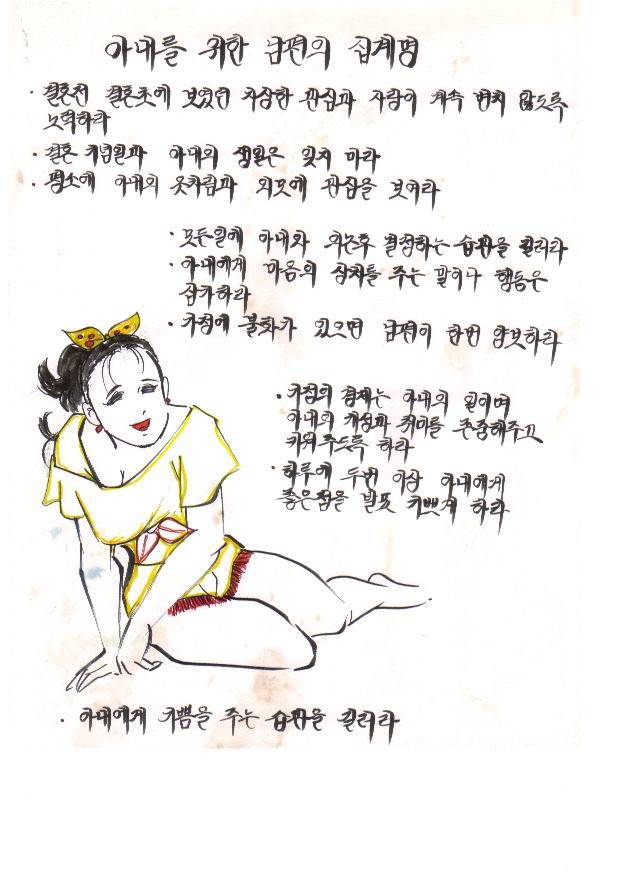 아내를 위한 남편의 십계명
· 결혼전 결혼초에 보였던 자상한 관심과 사랑이 계속 변치 않도록
노력하라
· 결혼 기념일과 아내의 생일은 잊지 마라
· 평소에 아내의 옷차림과 외모에 관심을 보여라
· 모든일에 아내와 의논후 결정하는 습관을 길러라
· 아내에게 마음의 상처를 주는 말이나 행동은
삼가하라
· 가정에 불화가 있으면 남편이 한번 양보하라
· 가정의 경제는 아내의 일이며
아내의 개성과 취미를 존중해주고
키워주도록 하라
· 하루에 두번 이상 아내에게
좋은점을 발표 기쁘게 하라
· 아내에게 기쁨을 주는 습관을 길러라